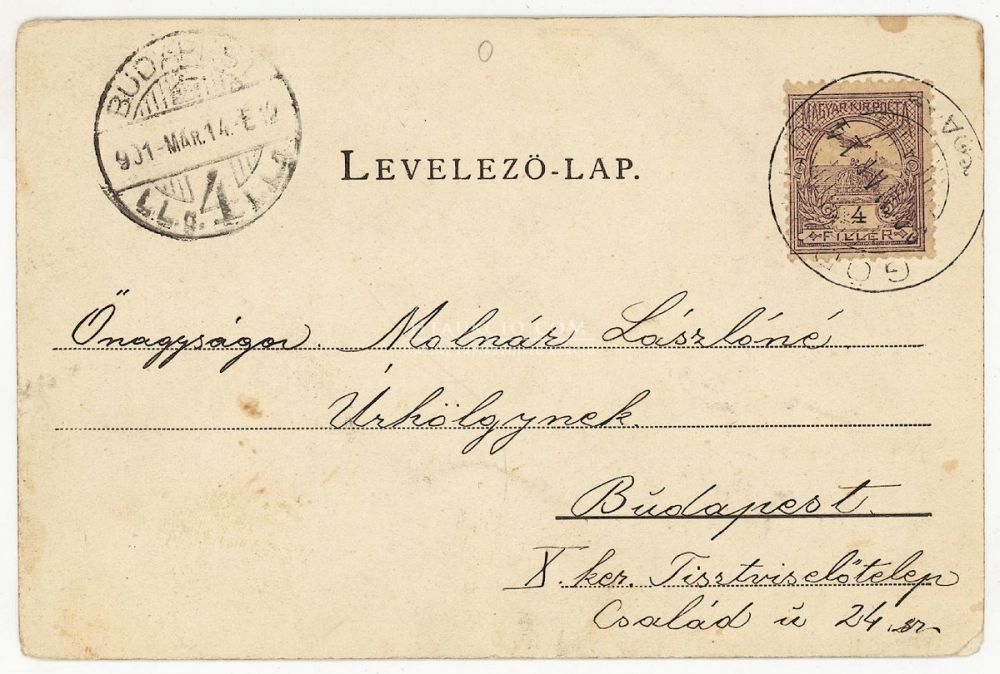 BUDAPEST
901-MÁR.14-E
4
0
LEVELEZŐ-LAP.
MAGYAR·KIR·POSTA
4
FILLÉR
Őnagysága. Molnár Lászlóné.
Úrhölgynek.
Budapest.
X. ker. Tisztviselőtelep
Család ú 24. sz